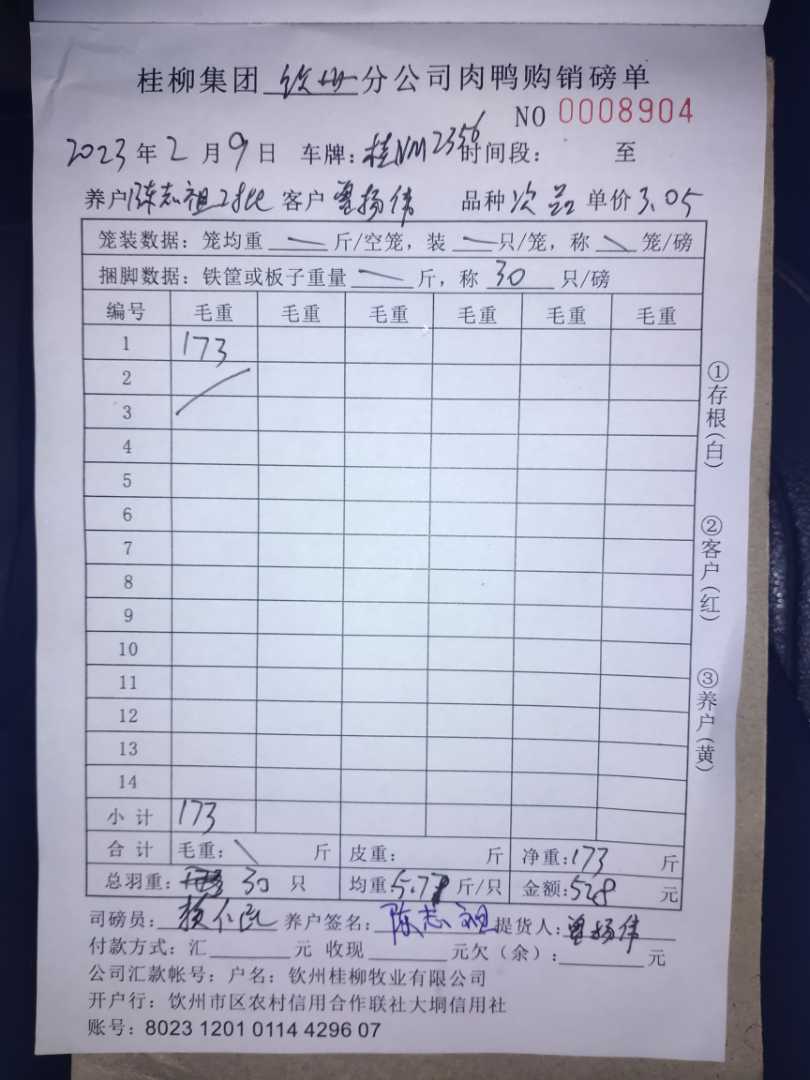 桂柳集团 钦州 分公司肉鸭购销磅单
NO 0008904
2023年2月9日 车牌:桂NM2356 时间段: 至
养户 陈志祖2批 客户 曾扬伟 品种 次品 单价 3.05
笼装数据:笼均重 斤/空笼,装 只/笼,称 笼/磅
捆脚数据:铁筐或板子重量 斤,称 30 只/磅
编号 毛重 毛重 毛重 毛重 毛重 毛重
1 173
2
3
4
5
6
7
8
9
10
11
12
13
14
小计 173
合计 毛重: 斤 皮重: 斤 净重:173 斤
总羽重: 30 只 均重 5.77 斤/只 金额:528 元
司磅员: 仁民 养户签名:陈志祖 提货人:曾扬伟
付款方式:汇 元 收现 元欠(余): 元
公司汇款帐号:户名:钦州桂柳牧业有限公司
开户行:饮州市区农村信用合作联社大垌信用社
账号:8023 1201 0114 4296 07
①存根(白)
②客户(红)
③养户(黄)